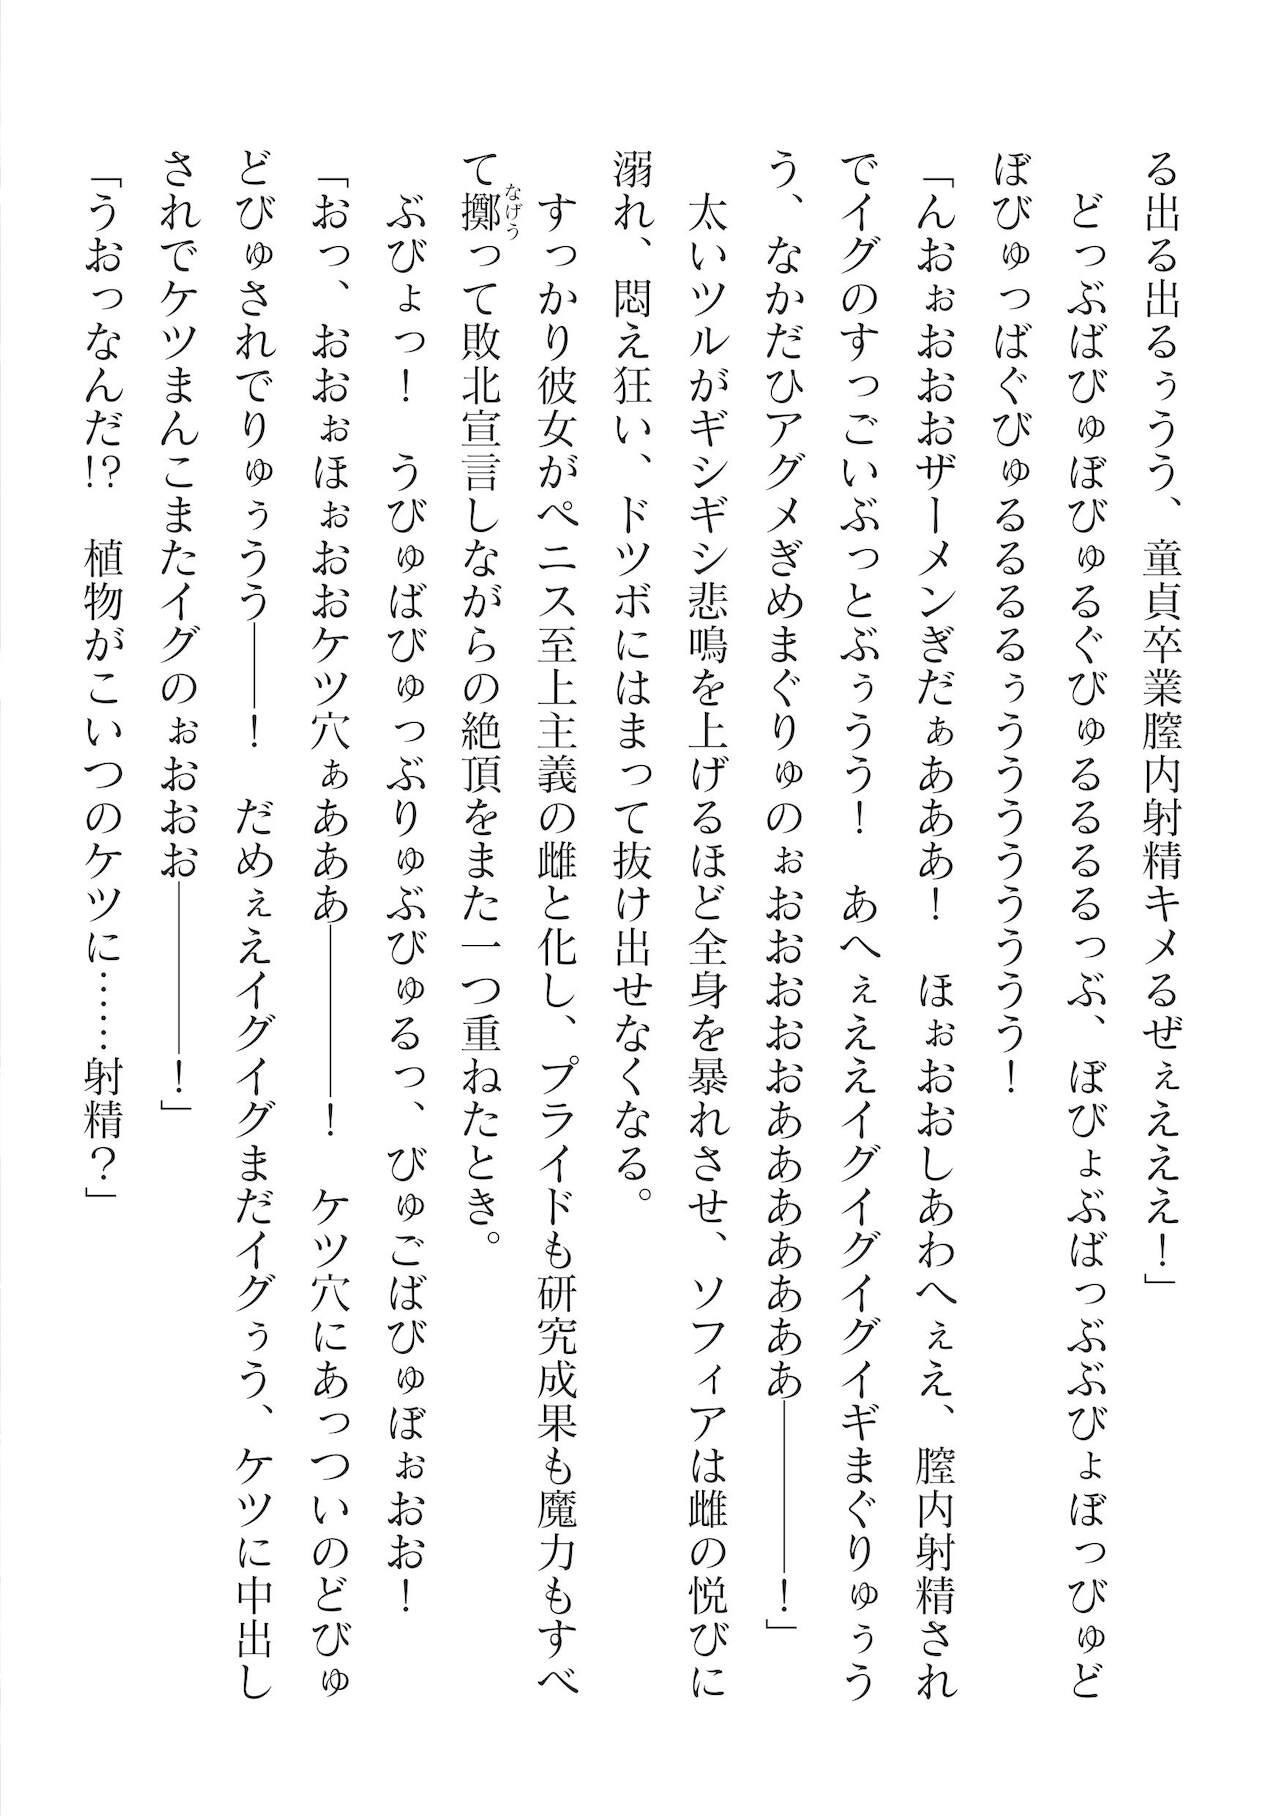 る出る出るぅうう、童貞卒業膣内射精キメるぜぇえええ！」
　どっぶばびゅぼびゅるぐびゅるるるるっぶ、ぼびょぶばっぶぶびょぼっびゅど
ぼびゅっばぐびゅるるるるぅううううううううう！
「んおぉおおおザーメンぎだぁあああ！　ほぉおおしあわへぇえ、膣内射精され
でイグのすっごいぶっとぶぅうう！　あへぇええイグイグイグイギまぐりゅぅう
う、なかだひアグメぎめまぐりゅのぉおおおおおあああああああ――――！」
　太いツルがギシギシ悲鳴を上げるほど全身を暴れさせ、ソフィアは雌の悦びに
溺れ、悶え狂い、ドツボにはまって抜け出せなくなる。
　すっかり彼女がペニス至上主義の雌と化し、プライドも研究成果も魔力もすべ
て擲なげうって敗北宣言しながらの絶頂をまた一つ重ねたとき。
　ぶびょっ！　うびゅばびゅっぶりゅぶびゅるっ、びゅごばびゅぼぉおお！
「おっ、おおぉほぉおおケツ穴ぁあああ――――！　ケツ穴にあっついのどびゅ
どびゅされでりゅぅうう――！　だめぇえイグイグまだイグぅう、ケツに中出し
されでケツまんこまたイグのぉおおお――――！」
「うおっなんだ!?　植物がこいつのケツに……射精？」